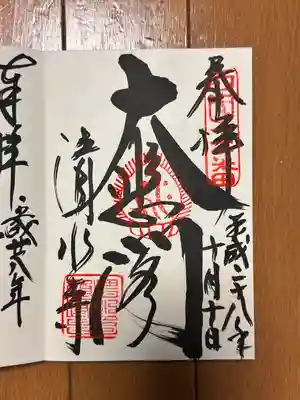 奉拝
平成二十八年
十月十日
大悲閣
清水寺
奉拝
平成廿八年